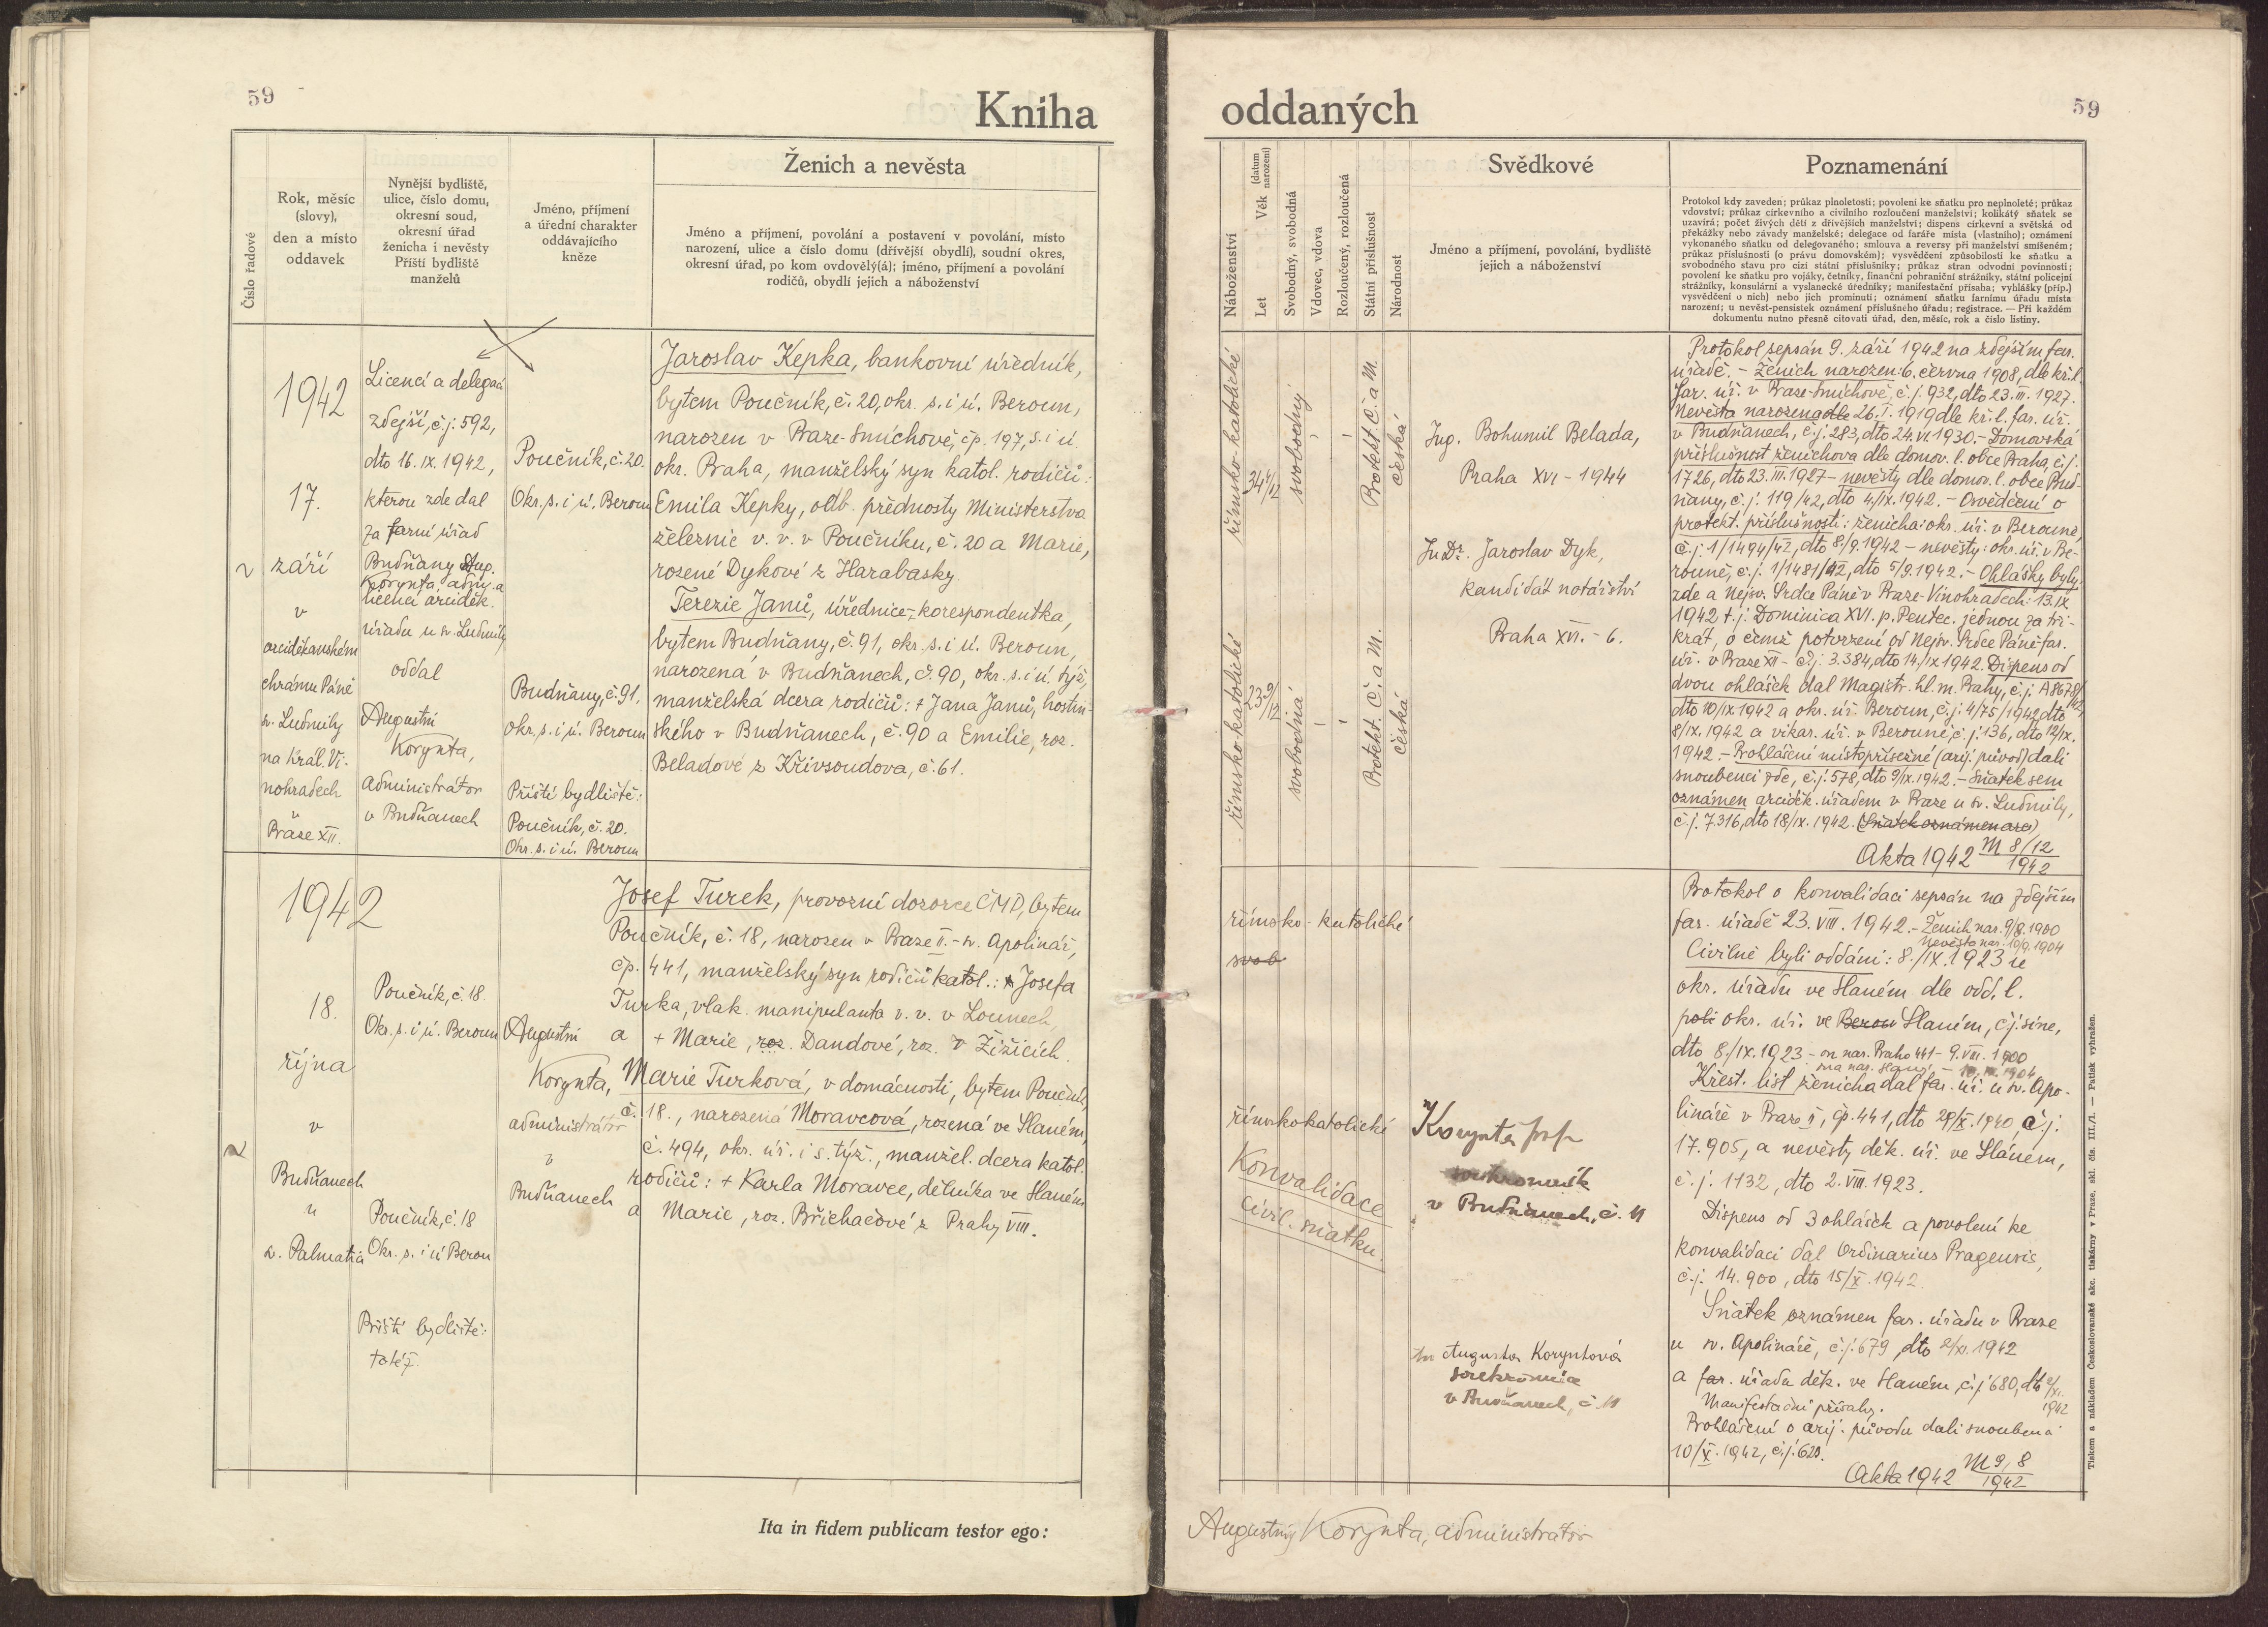 59
Kniha
Číslo řadové
Rok, měsíc
(slovy),
den a místo
oddavek
Nynější bydliště,
ulice, číslo domu,
okresní soud,
okresní úřad
ženicha i nevěsty
Příští bydliště
manželů
Jméno, příjmení
a úřední charakter
oddávajícího
kněze
Ženich a nevěsta
Jméno a příjmení, povolání a postavení v povolání, místo
narození, ulice a číslo domu (dřívější obydlí), soudní okres,
okresní úřad, po kom ovdovělý(á); jméno, příjmení a povolání
rodičů, obydlí jejich a náboženství
1942
17.
září
v
arciděkanském
chrámu Páně
sv. Ludmily
na Král. Vi-
nohradech
v
Praze XII.
Licencí a delegací
zdejší, č.j. 592,
dto 16. IX. 1942,
kterou zde dal
za farní úřad
Budňany Aug.
Korynta, adm. a
licencí arciděk.
úřadu u sv. Ludmily
oddal
Augustin
Korynta,
administrátor
v Budňanech
Poučník, č. 20.
Okr. s. i ú. Beroun
Budňany, č. 91,
okr. s. i ú. Beroun
Příští bydliště:
Poučník, č. 20.
Okr. s. i ú. Beroun
Jaroslav Kepka, bankovní úředník,
bytem Poučník, č. 20, okr. s. i ú. Beroun,
narozen v Praze-Smíchově, čp. 197, s. i ú.
okr. Praha, manželský syn katol. rodičů:
Emila Kepky, odb. přednosty Ministerstva
železnic v. v. v Poučníku, č. 20 a Marie,
rozené Dykové z Harabasky.
Terezie Janů, úřednice-korespondentka,
bytem Budňany, č. 91, okr. s. i ú. Beroun,
narozená v Budňanech, č. 90, okr. s. i ú. týž,
manželská dcera rodičů: + Jana Janů, hostin-
ského v Budňanech, č. 90 a Emilie, roz.
Beladové z Křivsoudova, č. 61.
1942
18.
října
v
Budňanech
u
sv. Palmatia
Poučník, č. 18.
Okr. s. i ú. Beroun
Poučník, č. 18
Okr. s. i ú Beroun
Příští bydliště:
totéž.
Augustin
Korynta,
administrátor
v
Budňanech
Josef Turek, provozní dozorce ČMD, bytem
Poučník, č. 18, narozen v Praze II. - sv. Apolinář,
čp. 441, manželský syn rodičů katol.: Josefa
Turka, vlak. manipulanta v. v. v Lounech,
a + Marie, roz. Dandové, roz. v Žižicích.
Marie Turková, v domácnosti, bytem Poučník,
č. 18., narozená Moravcová, rozená ve Slaném,
č. 494, okr. úř. i s. týž., manžel. dcera katol.
rodičů: + Karla Moravce, dělníka ve Slaném
a Marie, roz. Břichačové z Prahy VIII.
Ita in fidem publicam testor ego:
oddaných
59
Náboženství
Let Věk (datum narození)
Svobodný, svobodná
Vdovec, vdova
Rozloučený, rozloučená
Státní příslušnost
Národnost
Svědkové
Jméno a příjmení, povolání, bydliště
jejich a náboženství
Poznamenání
Protokol kdy zaveden; průkaz plnoletosti; povolení ke sňatku pro neplnoleté; průkaz
vdovství; průkaz církevního a civilního rozloučení manželství; kolikátý sňatek se
uzavírá; počet živých dětí z dřívějších manželství; dispens církevní a světská od
překážky nebo závady manželské; delegace od faráře místa (vlastního); oznámení
vykonaného sňatku od delegovaného; smlouva a reversy při manželství smíšeném;
průkaz příslušnosti (o právu domovském); vysvědčení způsobilosti ke sňatku a
svobodného stavu pro cizí státní příslušníky; průkaz stran odvodní povinnosti;
povolení ke sňatku pro vojáky, četníky, finanční pohraniční strážníky, státní policejní
strážníky, konsulární a vyslanecké úředníky; manifestační přísaha; vyhlášky (příp.)
vysvědčení o nich) nebo jich prominutí; oznámení sňatku farnímu úřadu místa
narození; u nevěst-pensistek oznámení příslušného úřadu; registrace. — Při každém
dokumentu nutno přesně citovati úřad, den, měsíc, rok a číslo listiny.
římsko-katolické
svobodný
Protekt. Č. a M.
česká
římsko-katolické
svobodná
Protekt. Č. a M.
česká
Ing. Bohumil Belada,
Praha XVI - 1944
JuDr. Jaroslav Dyk,
kandidát notářství
Praha XVI. - 6.
Protokol sepsán 9. září 1942 na zdejším far.
úřadě. - Ženich narozen: 6. června 1908, dle kř. l.
far. úř. v Praze-Smíchově, č.j. 932, dto 23. III. 1927.
Nevěsta narozena dle 26. I. 1919 dle kř. l. far. úř.
v Budňanech, č.j. 283, dto 24. VI. 1930. - Domovská
příslušnost ženichova dle domov. l. obce Praha, č.j.
1726, dto 23. III. 1927 - nevěsty dle domov. l. obce Bud-
ňany, č.j. 119/42, dto 4/IX. 1942. - Osvědčení o
protekt. příslušnosti: ženicha: okr. úř. v Berouně,
č.j. 1/1494/42, dto 8/9. 1942 - nevěsty: okr. úř. v Be-
rouně, č.j. 1/1481/42, dto 5/9. 1942. - Ohlášky byly
zde a Nejsv. Srdce Páně v Praze-Vinohradech: 13. IX
1942 t. j. Dominica XVI. p. Pentec. jednou za tři-
krát, o čemž potvrzení od Nejsv. Srdce Páně far.
úř. v Praze XII - č.j. 3.384, dto 14./IX 1942. Dispens od
dvou ohlášek dal Magistr. hl. m. Prahy, č.j. A8678/42,
dto 10/IX 1942 a okr. úř. Beroun, č.j. 4/75/1942, dto
8/IX. 1942 a vikar. úř. v Berouně, č.j. 136, dto 12/IX.
1942. - Prohlášení místopřísežné (arij. původ) dali
snoubenci zde, č.j. 578, dto 9/IX. 1942. - Sňatek sem
oznámen arciděk. úřadem v Praze u sv. Ludmily,
č.j. 7316, dto 18/IX. 1942. (Sňatek oznámen arci)
Akta 1942 M 8/12
1942
římsko-katolické
svob
římskokatolické
Konvalidace
civil. sňatku.
Korynta
soukromník
v Budňanech, č. 11
Augusta Koryntová
soukromnice
v Budňanech, č. 11
Protokol o konvalidaci sepsán na zdejším
far. úřadě 23. VIII. 1942. - Ženich nar. 9/8. 1900
Nevěsta nar. 10/9. 1904
Civilně byli oddáni: 8./IX. 1923 u
okr. úřadu ve Slaném dle odd. l.
poli okr. úř. ve Berou Slaném, č.j. sine,
dto 8./IX. 1923 - on nar. Praha 441 - 9. VIII. 1900
ona nar. Slaný - 10. IX. 1904
Křest. list ženicha dal far. úř. u sv. Apo-
lináře v Praze II, čp. 441, dto 29/X. 1940, č.j.
17.905, a nevěsty děk. úř. ve Slaném,
č.j. 1132, dto 2. VIII. 1923.
Dispens od 3 ohlášek a povolení ke
konvalidaci dal Ordinarius Pragensis,
č.j. 14.900, dto 15/X. 1942.
Sňatek oznámen far. úřadu v Praze
u sv. Apolináře, č.j. 679, dto 2/XI. 1942
a far. úřadu děk. ve Slaném, č.j. 680, dto 2/XI.
1942
Manifestační přísahy.
Prohlášení o arij. původu dali snoubenci
10/X. 1942, č.j. 620.
Akta 1942 M 9, 8
1942
Tiskem a nákladem Československé akc. tiskárny v Praze, skl. čís. III./1. — Patisk vyhražen.
Augustin Korynta, administrátor